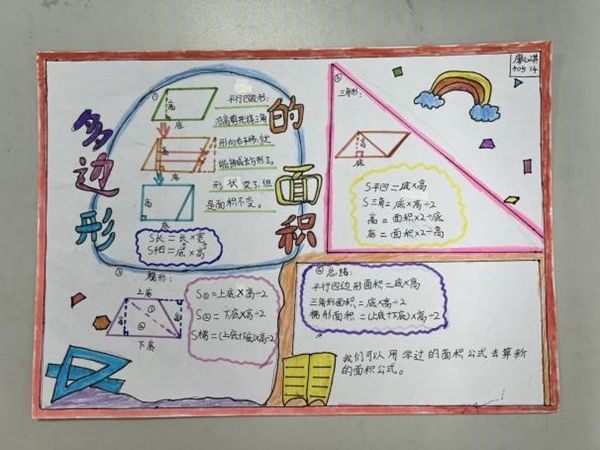 多边形
的面积
①
平行四边形:
沿高剪开将三角
形向右平移,这
形状变了,但
是面积不变。
高
底
高
底
高
底
S长=长×宽
S平四=底×高
②
三角形:
高
底
S平四=底×高
S三角=底×高÷2
高=面积×2÷底
底=面积×2÷高
405 14
③
梯形:
上底
高
①
②
高
下底
S①=上底×高÷2
S②=下底×高÷2
S梯=(上底+下底)×高÷2
④总结:
平行四边形面积=底×高
三角形面积=底×高÷2
梯形面积=(上底+下底)×高÷2
我们可以用学过的面积公式去算新
的面积公式。